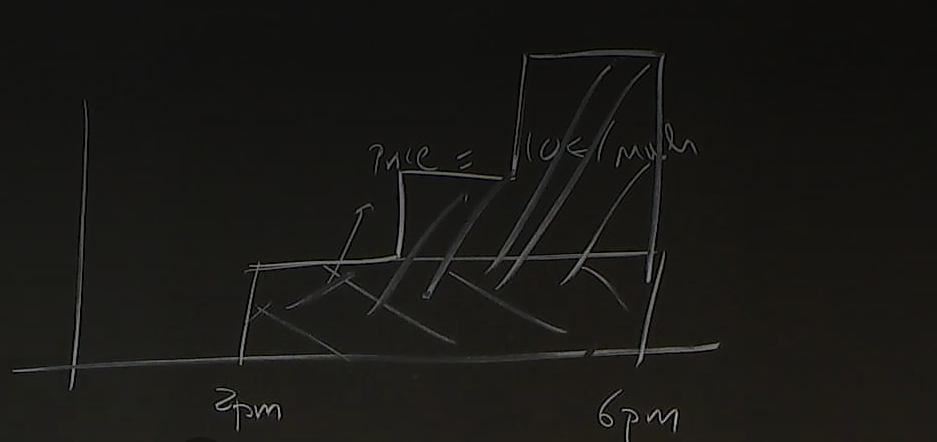 Price = 10€/MWh
2pm 6pm